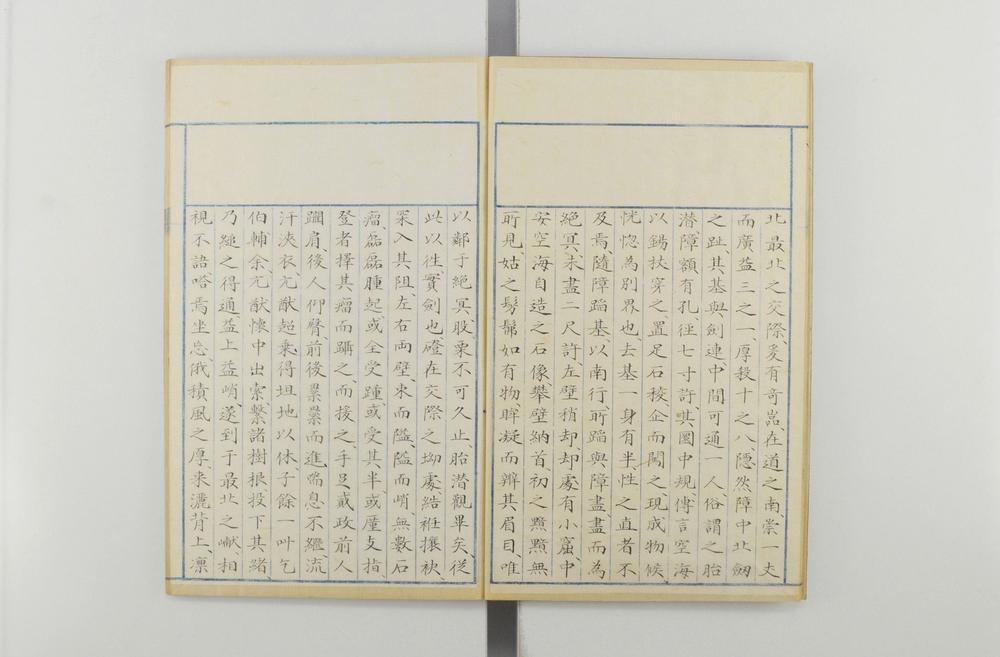 北、最北之交際、爰有奇嵓、在道之南、崇一丈
而廣益三之一、厚殺十之八、隱然障中北劒
之趾、其基與劍連、中間可通一人、俗謂之胎
潜障、額有孔、徑七寸許、眞圜中規、傳言空海
以錫扶穿之、置足石稜、企而闖之、現成物候、
恍惚為別界也、去基一身有半、性之直者不
及焉、隨障蹈基、以南行、所蹈與障盡、盡而為
絕冥、未盡二尺許、左壁稍却、却處有小窟、中
安空海自造之石像、攀壁納首、初之黯黯無
所見、姑之髣髴如有物、眸凝而辨其眉目、唯
以鄰于絕冥、股栗不可久止、胎潜觀畢矣、從
此以往、實劍也、磴在交際之坳處、結袵攘袂、
罙入其阻、左右両壁、束而隘、隘而峭、無數石
瘤、磊磊腫起、或全受踵、或受其半、或廑支指、
登者擇其瘤而躡之、而援之、手𠯁戴政前人
躅肩、後人仰臀、前後累累而進、喘息不繼、流
汗浹衣、尤猷超乗得坦地以休、子餘一呌乞
伯輔余、尤猷懷中出索、繫諸樹根、投下其緒、
乃縋之得通、益上益峭、遂到于最北之巘、相
視不語、嗒焉坐忘、俄積風之厚、来灑背上、凛